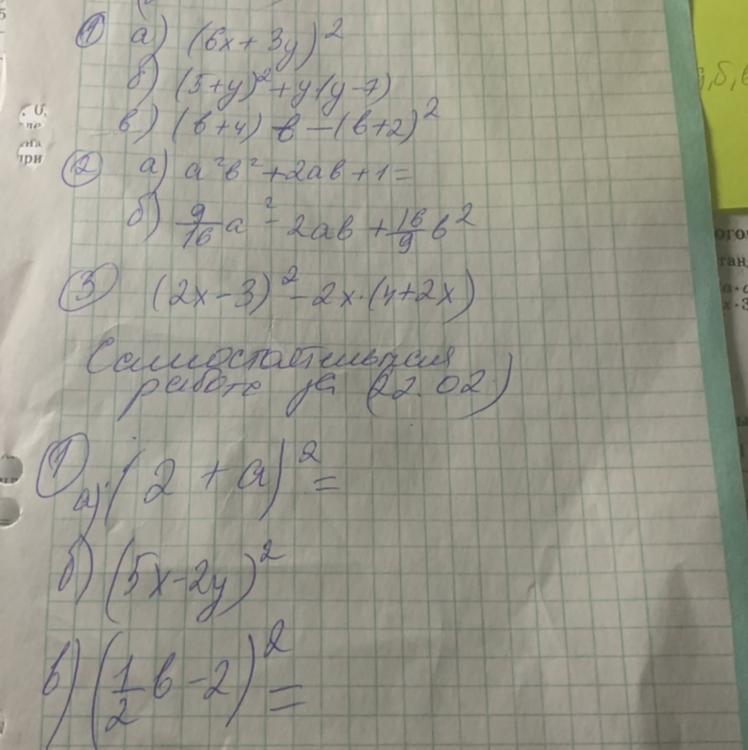 ① а) (6x + 3y)²
б) (5+y)² + y(y-7)
в) (в+4) в - (в+2)²
② а) а²в² + 2ав + 1 =
б) 9/16 а² - 2ав + 16/9 в²
③ (2x - 3)² - 2x·(4+2x)
Самостоятельная
работа за (22.02)
① а) (2 + а)² =
б) (5x - 2y)²
в) (1/2 в - 2)² =